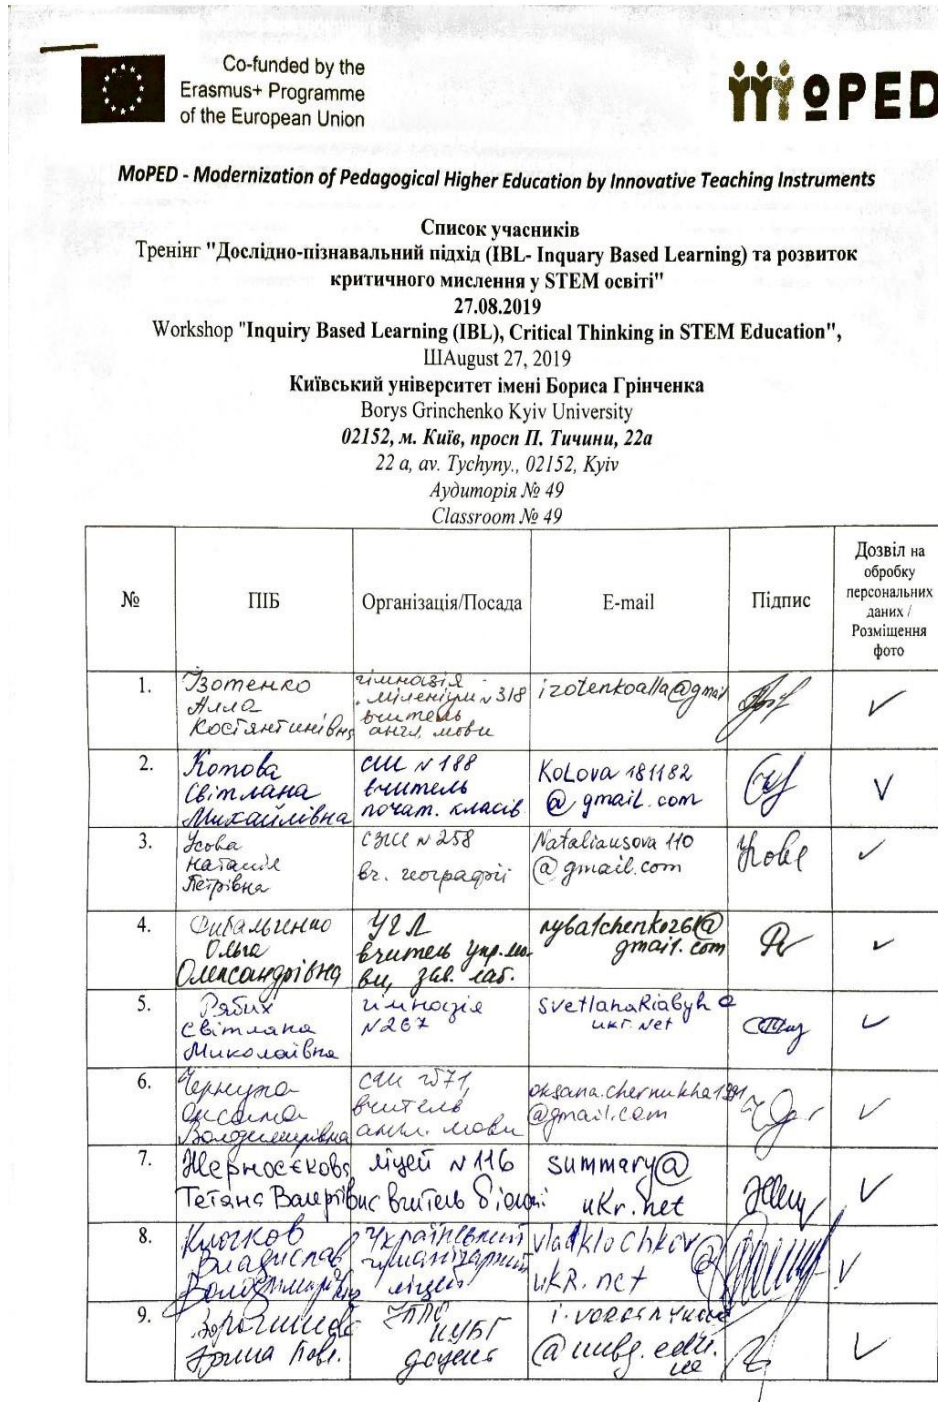 Co-funded by the
Erasmus+ Programme
of the European Union
MOPED
MoPED - Modernization of Pedagogical Higher Education by Innovative Teaching Instruments
Список учасників
Тренінг "Дослідно-пізнавальний підхід (IBL- Inquary Based Learning) та розвиток
критичного мислення у STEM освіті"
27.08.2019
Workshop "Inquiry Based Learning (IBL), Critical Thinking in STEM Education",
ШAugust 27, 2019
Київський університет імені Бориса Грінченка
Borys Grinchenko Kyiv University
02152, м. Київ, просп П. Тичини, 22а
22 a, av. Tychyny., 02152, Kyiv
Аудиторія № 49
Classroom № 49
№
ПІБ
Організація/Посада
E-mail
Підпис
Дозвіл на
обробку
персональних
даних /
Розміщення
фото
1.
Ізотенко
Алла
Костянтинівна
гімназія
міленіум N 318
вчитель
англ. мови
izotenkoalla@gmail
2.
Котова
Світлана
Михайлівна
СШ N 188
вчитель
почат. класів
Kotova 181182
@ gmail.com
3.
Усова
Наталія
Петрівна
СЗШ N 258
вч. географії
Nataliausova 110
@ gmail.com
4.
Рибальченко
Ольга
Олександрівна
УГЛ
вчитель укр. мо-
ви, зав. лаб.
gmail.com
5.
Рябих
Світлана
Миколаївна
гімназія
N 267
svetlanaRiabyh@
ukr.net
6.
Чернуха
Оксана
Володимирівна
СШ N 71,
вчитель
англ. мови
oksana.chernukha1991
@gmail.com
7.
Жерносєкова
Тетяна Валеріївна
ліцей N 116
вчитель біології
summary@
ukr.net
8.
Клочков
Владислав
Володимирович
Український
гуманітарний
ліцей
vladklochkov@
ukR.net
9.
Ірина Павл.
ІППО
КУБГ
доцент
@ kubg.edu.
ua